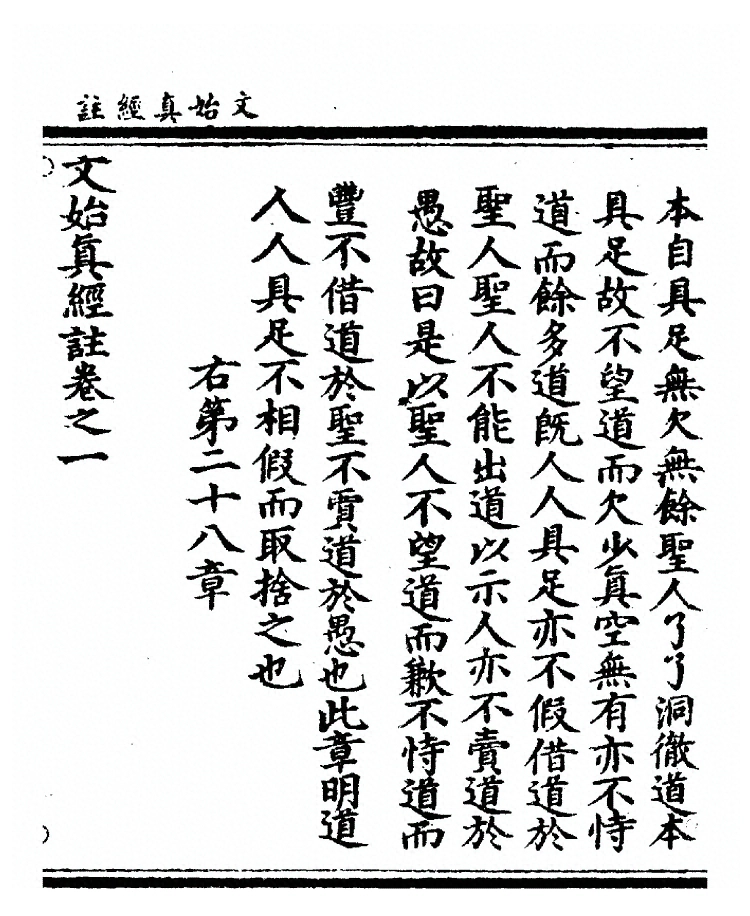 文始真經註
本自具足無欠無餘聖人了了洞徹道本
具足故不望道而欠少眞空無有亦不恃
道而餘多道旣人人具足亦不假借道於
聖人聖人不能出道以示人亦不賣道於
愚故曰是以聖人不望道而歉不恃道而
豐不借道於聖不賈道於愚也此章明道
人人具足不相假而取捨之也
右第二十八章
文始眞經註卷之一